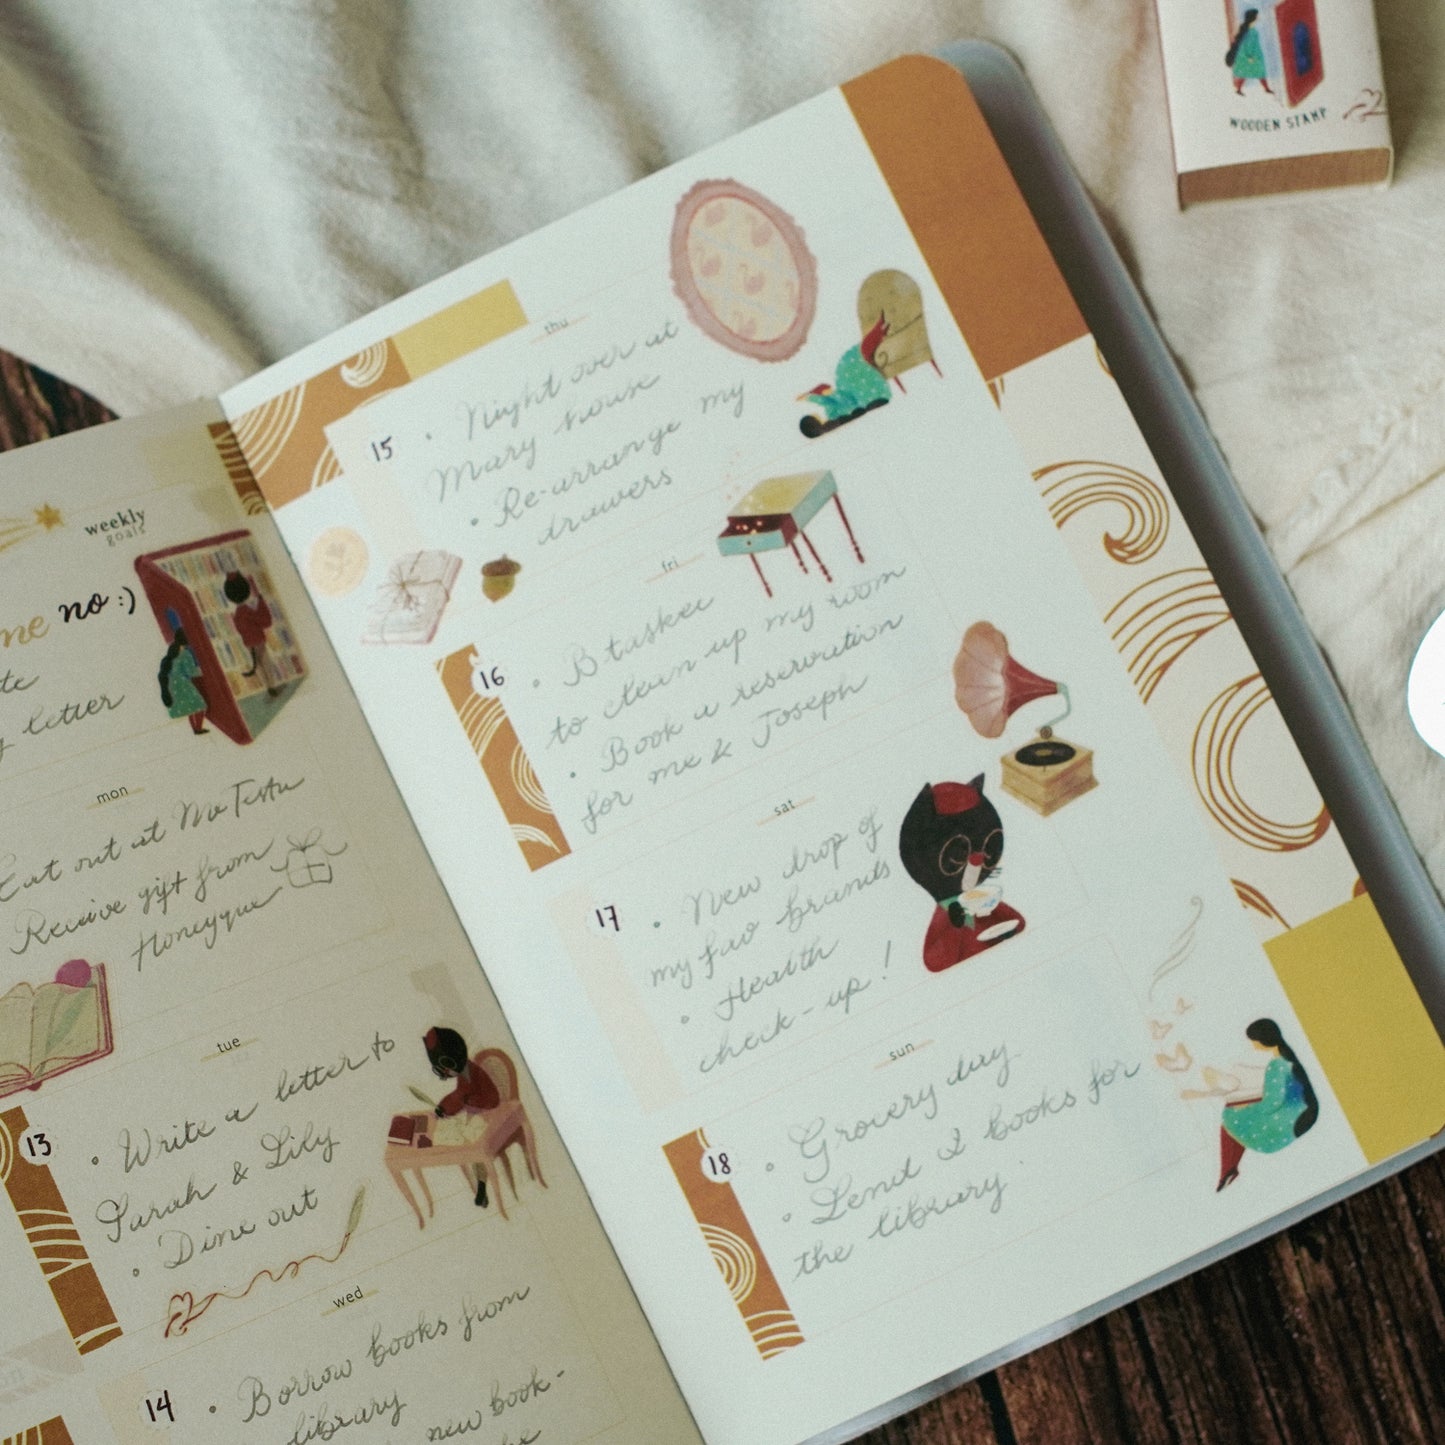 WOODEN STAMP
weekly
goals
me no :)
letter
mon
Eat out at
Receive gift from
Honeyque
tue
13
• Write a letter to
Sarah & Lily
• Dine out
wed
14
• Borrow books from
library
new book-
thu
15
• Night over at
Mary house
• Re-arrange my
drawers
fri
16
• B tasker
to clean up my room
• Book a reservation
for me & Joseph
sat
17
• New drop of
my fav brands
• Health
check-up!
sun
18
• Grocery day
• Lend 2 books for
the library.